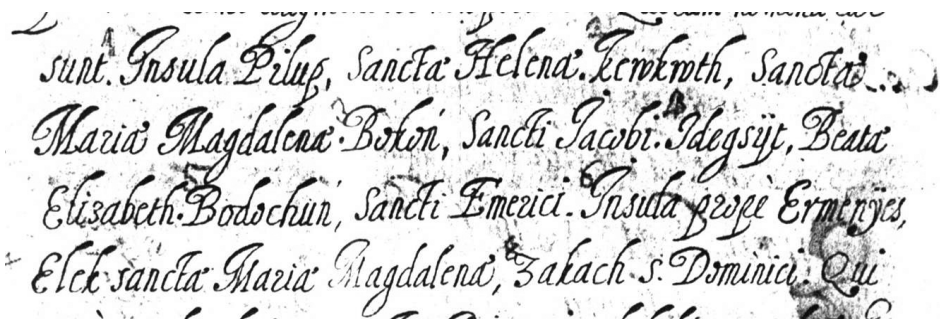 sunt. Insula Pilup, Sanctæ Helenæ. Kewkwth, Sanctæ
Mariæ Magdalenæ. Bokoń, Sancti Jacobi. Idegsÿt, Beatæ
Elizabeth. Bodochun, Sancti Emerici. Insula prope Ermenÿes,
Elek sanctæ Mariæ Magdalenæ, Zakach s. Dominici. Qui